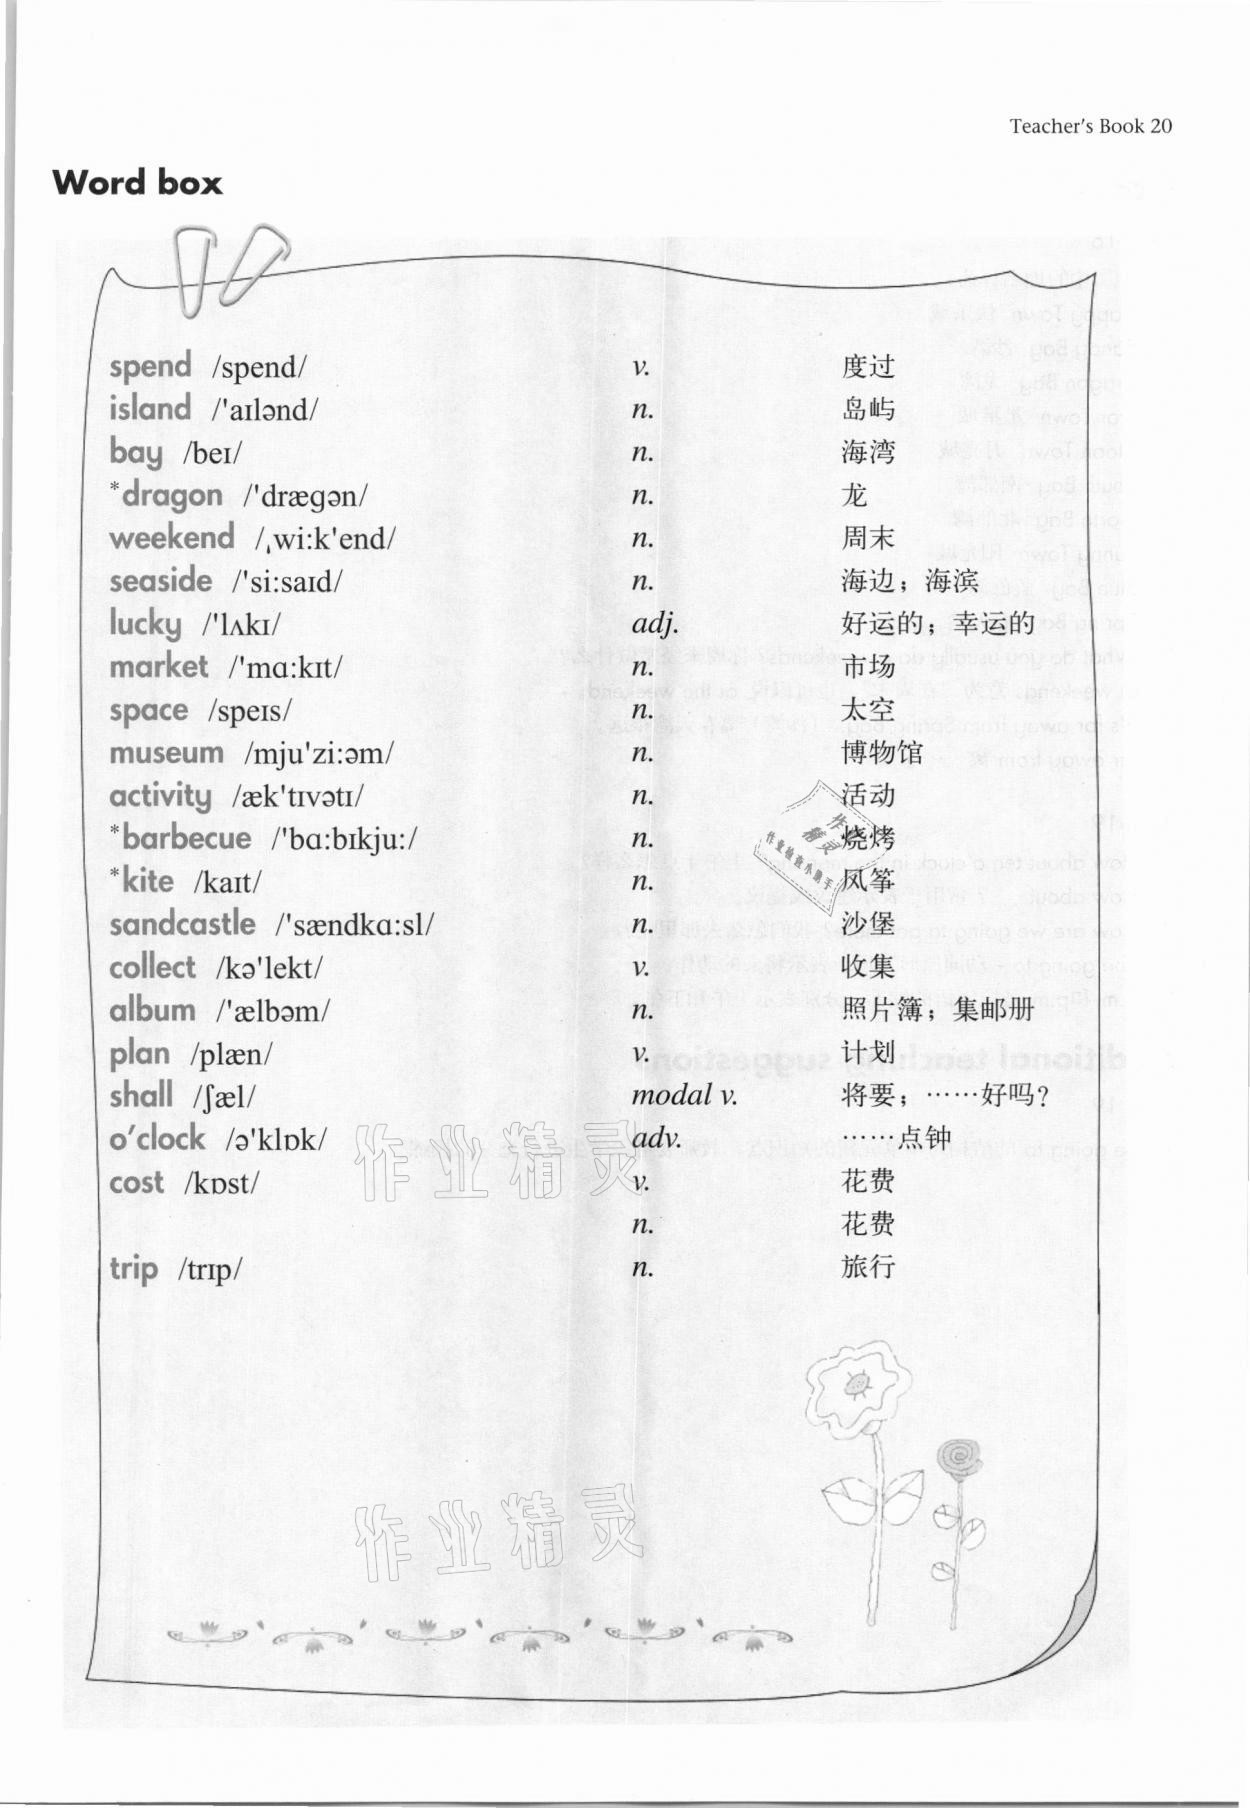 Teacher's Book 20
Word box
spend /spend/ v. 度过
island /'aɪlənd/ n. 岛屿
bay /beɪ/ n. 海湾
*dragon /'dræɡən/ n. 龙
weekend /ˌwiːk'end/ n. 周末
seaside /'siːsaɪd/ n. 海边；海滨
lucky /'lʌkɪ/ adj. 好运的；幸运的
market /'mɑːkɪt/ n. 市场
space /speɪs/ n. 太空
museum /mju'ziːəm/ n. 博物馆
activity /æk'tɪvətɪ/ n. 活动
*barbecue /'bɑːbɪkjuː/ n. 烧烤
*kite /kaɪt/ n. 风筝
sandcastle /'sændkɑːsl/ n. 沙堡
collect /kə'lekt/ v. 收集
album /'ælbəm/ n. 照片簿；集邮册
plan /plæn/ v. 计划
shall /ʃæl/ modal v. 将要；……好吗？
o'clock /ə'klɒk/ adv. ……点钟
cost /kɒst/ v. 花费
n. 花费
trip /trɪp/ n. 旅行
作业精灵
作业精灵
作业精灵
作业检查小助手